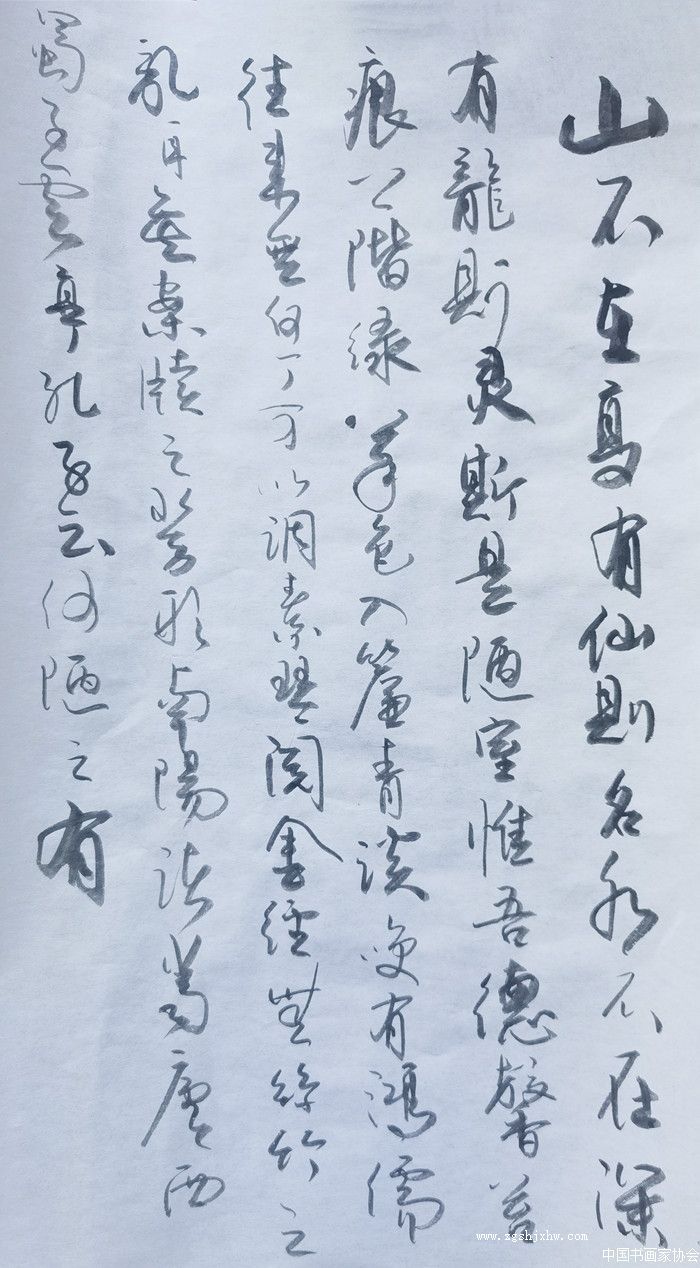 山不在高有仙則名水不在深
有龍則灵斯是陋室惟吾德馨苔
痕上階緑草色入簾青談笑有鴻儒
往来無白丁可以調素琴閲金經無絲竹之
亂耳無案牘之勞形南陽諸葛廬西
蜀子雲亭孔子云何陋之有
www.zgshjxhw.com
中国书画家协会